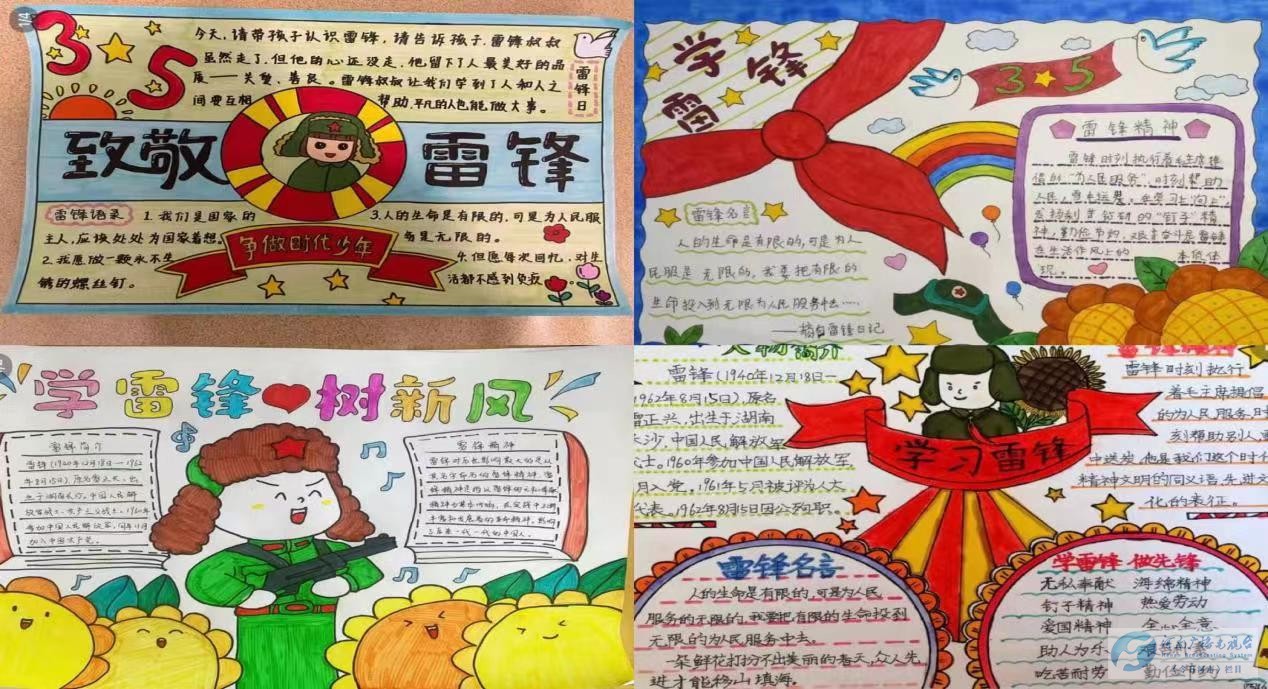 1/4
3
5
今天,请带孩子认识雷锋,请告诉孩子,雷锋叔叔
虽然走了,但他的心还没走,他留下了人最美好的品
质——关爱、善良。雷锋叔叔让我们学到了人和人之
间要互相帮助,平凡的人也能做大事。
雷锋日
致敬
雷锋
雷锋语录
1.我们是国家的
主人,应该处处为国家着想。
2.我愿做一颗永不生
锈的螺丝钉。
3.人的生命是有限的,可是为人民服
务是无限的。
4.但愿每次回忆,对生
活都不感到负疚
争做时代少年
学
雷
锋
3
5
雷锋精神
雷锋时刻执行着毛主席提
倡的“为人民服务”,时刻帮助
人民,
神,勤俭节约,艰苦奋斗是雷锋
在生活作风上的本质体
现。
雷锋名言
人的生命是有限的,可是为人
民服是无限的,我要把有限的
生命投入到无限为人民服务中去……
——摘自雷锋日记
学雷锋树新风
雷锋简介
雷锋(1940年12月18日—1962
年8月15日),原名雷正兴,出
生于湖南长沙,中国人民解
放军战士,共产主义战士,1960年
参加中国人民解放军,同年11月
加入中国共产党。
雷锋精神
人物简介
雷锋(1940年12月18日—
1962年8月15日),原名
雷正兴,出生于湖南
长沙,中国人民解放军
战士,1960年参加中国人民解放军,
月入党。1961年5月被评为人大
代表。1962年8月5日因公殉职。
雷锋时刻执行
着毛主席提倡
的为人民服务,时
刻帮助别人,
中送炭,他是我们这个时代
精神文明的同义语,先进文
化的表征。
学习雷锋
雷锋名言
人的生命是有限的,可是为人民
服务的无限的,我要把有限的生命投到
无限的为民服务中去。
一朵鲜花打扮不出美丽的春天,众人先
进才能移山填海。
学雷锋 做先锋
无私奉献 海绵精神
钉子精神 热爱劳动
爱国精神 全心全意
助人为乐 艰苦
吃苦耐劳 勤俭节约